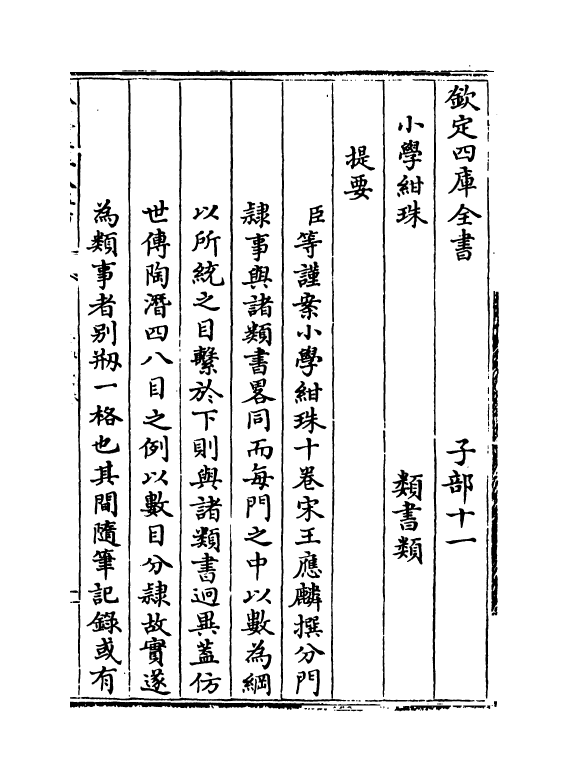 欽定四庫全書　子部十一
小學紺珠　類書類
提要
臣等謹案小學紺珠十卷宋王應麟撰分門
隸事與諸類書畧同而每門之中以數為綱
以所統之目繫於下則與諸類書迥異葢仿
世傳陶潛四八目之例以數目分隸故實遂
為類事者别剏一格也其間隨筆記錄或有